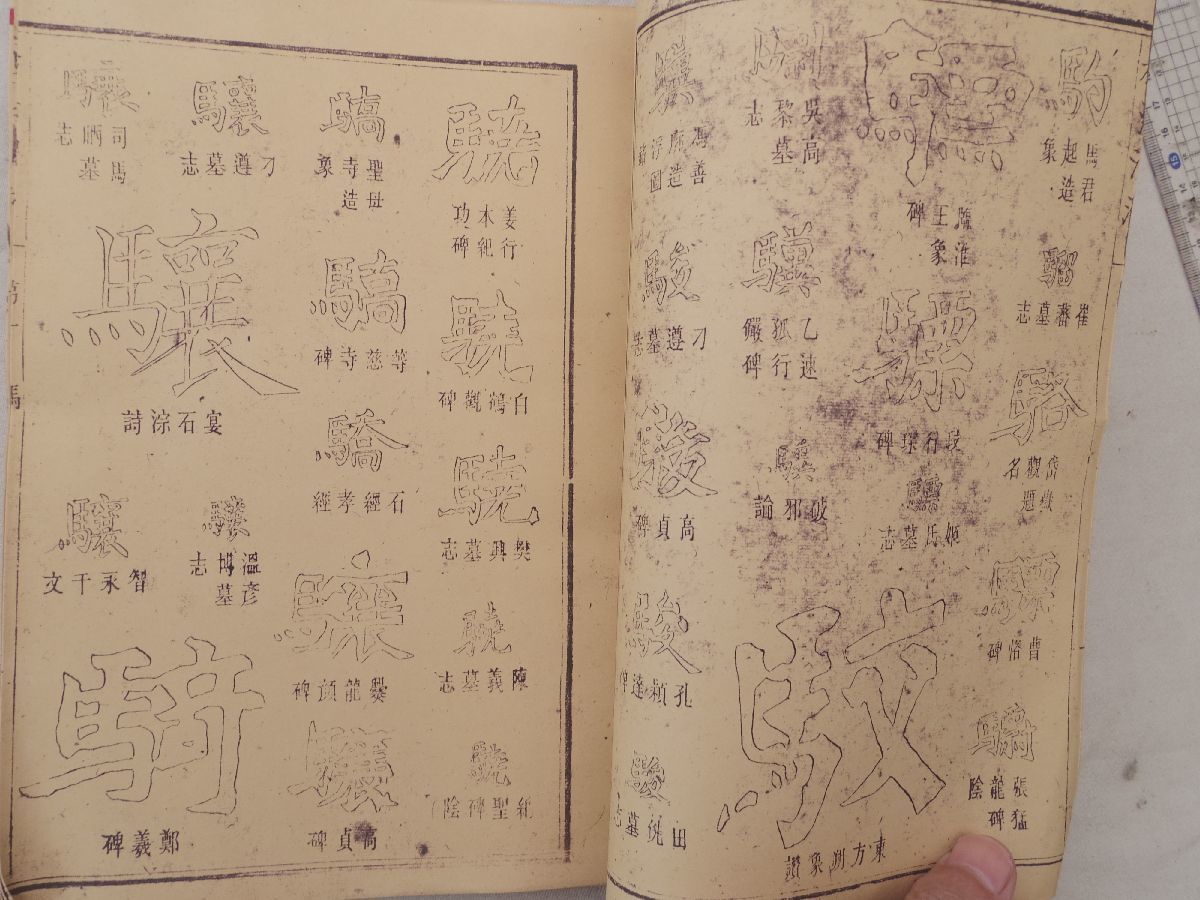 駒
馬君
起造
象
騮
崔蕃墓志
駱
岱嶽
觀題
名
驃
曹恪碑
驕
張猛
龍碑
陰
驛
隋淮
王象
碑
驃
段行琛碑
驪
姬氏墓志
馭
東方朔象讚
吳高
黎墓
志
驥
乙速
孤行
儼碑
驥
破邪論
馮善
廓造
浮圖
駿
刁遵墓志
駿
高貞碑
駿
孔穎達碑
駿
田侁墓志
驍
姜行
本紀
功碑
驍
白鶴觀碑
驍
樊興墓志
驍
陳義墓志
驍
紀聖碑陰
驕
聖母
寺造
象
驕
等慈寺碑
驕
石經孝經
驤
爨龍顏碑
驤
高貞碑
驤
刁遵墓志
驤
司馬
昞墓
志
驤
宴石淙詩
驤
溫彥
博墓
志
驤
智永千文
騎
鄭羲碑
馬